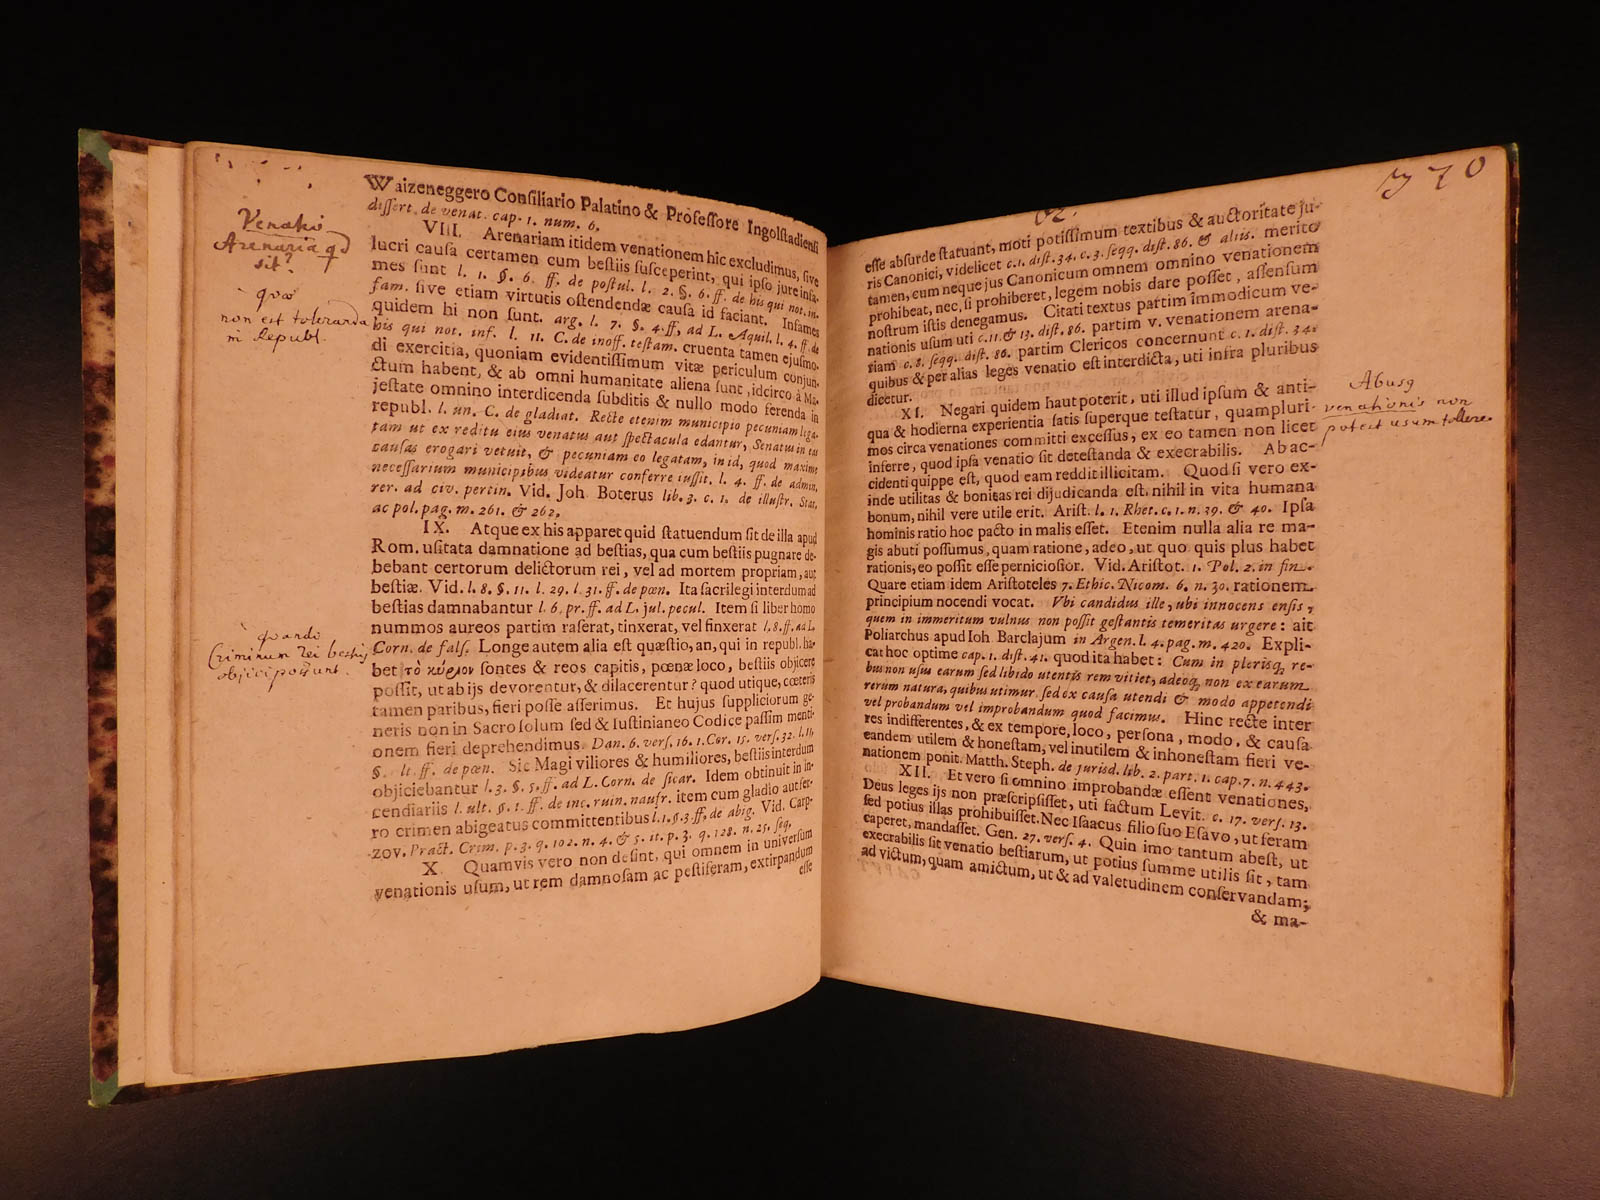 Venatio
Arenaria qd
sit?
quæ
non est toleranda
in Republ.
quando
Criminum rei bestiis
objici possunt.
Waizeneggero Consiliario Palatino & Professore Ingolstadiensi
dissert. de venat. cap. 1. num. 6.
VIII. Arenariam itidem venationem hic excludimus, sive
lucri causa certamen cum bestiis susceperint, qui ipso jure infa-
mes sunt l. 1. §. 6. ff. de postul. l. 2. §. 6. ff. de his qui not. in-
fam. sive etiam virtutis ostendendæ causa id faciant. Infames
quidem hi non sunt. arg. l. 7. §. 4. ff. ad L. Aquil. l. 4. ff. de
his qui not. inf. l. 11. C. de inoff. testam. cruenta tamen ejusmo-
di exercitia, quoniam evidentissimum vitæ periculum conjun-
ctum habent, & ab omni humanitate aliena sunt, idcirco à Ma-
jestate omnino interdicenda subditis & nullo modo ferenda in
republ. l. un. C. de gladiat. Recte etenim municipio pecuniam lega-
tam ut ex reditu ejus venatus aut spectacula edantur, Senatus in eas
causas erogari vetuit, & pecuniam eo legatam, in id, quod maxime
necessarium municipibus videatur conferre iussit. l. 4. ff. de admin.
rer. ad civ. pertin. Vid. Joh. Boterus lib. 3. c. 1. de illustr. Stat.
ac pol. pag. m. 261. & 262.
IX. Atque ex his apparet quid statuendum sit de illa apud
Rom. usitata damnatione ad bestias, qua cum bestiis pugnare de-
bebant certorum delictorum rei, vel ad mortem propriam, aut
bestiæ. Vid. l. 8. §. 11. l. 29. l. 31. ff. de pœn. Ita sacrilegi interdum ad
bestias damnabantur l. 6. pr. ff. ad L. jul. pecul. Item si liber homo
nummos aureos partim raserat, tinxerat, vel finxerat l. 8. ff. ad L.
Corn. de fals. Longe autem alia est quæstio, an, qui in republ. ha-
bet τὸ κύριον sontes & reos capitis, pœnæ loco, bestiis objicere
possit, ut ab ijs devorentur, & dilacerentur? quod utique, cœteris
tamen paribus, fieri posse asserimus. Et hujus suppliciorum ge-
neris non in Sacro solum sed & Iustinianeo Codice passim menti-
onem fieri deprehendimus. Dan. 6. vers. 16. 1. Cor. 15. vers. 32. l. 11.
§. ult. ff. de pœn. Sic Magi viliores & humiliores, bestiis interdum
objiciebantur l. 3. §. 5. ff. ad L. Corn. de sicar. Idem obtinuit in in-
cendiariis l. ult. §. 1. ff. de inc. ruin. naufr. item cum gladio aut fer-
ro crimen abigeatus committentibus l. 1. §. 3. ff. de abig. Vid. Carp-
zov. Pract. Crim. p. 3. q. 102. n. 4. & 5. it. p. 3. q. 128. n. 25. seq.
X. Quamvis vero non desint, qui omnem in universum
venationis usum, ut rem damnosam ac pestiferam, extirpandum
esse
370
esse absurde statuant, moti potissimum textibus & auctoritate ju-
ris Canonici, videlicet c. 1. dist. 34. c. 3. seqq. dist. 86. & aliis. merito
tamen, cum neque jus Canonicum omnem omnino venationem
prohibeat, nec, si prohiberet, legem nobis dare posset, assensum
nostrum istis denegamus. Citati textus partim immodicum ve-
nationis usum uti c. 11. & 13. dist. 86. partim v. venationem arena-
riam c. 8. seqq. dist. 86. partim Clericos concernunt c. 1. dist. 34.
quibus & per alias leges venatio est interdicta, uti infra pluribus
dicetur.
XI. Negari quidem haut poterit, uti illud ipsum & anti-
qua & hodierna experientia satis superque testatur, quampluri-
mos circa venationes committi excessus, ex eo tamen non licet
inferre, quod ipsa venatio sit detestanda & execrabilis. Ab ac-
cidenti quippe est, quod eam reddit illicitam. Quod si vero ex-
inde utilitas & bonitas rei dijudicanda est, nihil in vita humana
bonum, nihil vere utile erit. Arist. l. 1. Rhet. c. 1. n. 39. & 40. Ipsa
hominis ratio hoc pacto in malis esset. Etenim nulla alia re ma-
gis abuti possumus, quam ratione, adeo, ut quo quis plus habet
rationis, eo possit esse perniciosior. Vid. Aristot. 1. Pol. 2. in fin.
Quare etiam idem Aristoteles 7. Ethic. Nicom. 6. n. 30. rationem
principium nocendi vocat. Vbi candidus ille, ubi innocens ensis,
quem in immeritum vulnus non possit gestantis temeritas urgere: ait
Poliarchus apud Ioh. Barclajum in Argen. l. 4. pag. m. 420. Expli-
cat hoc optime cap. 1. dist. 41. quod ita habet: Cum in plerisq; re-
bus non usus earum sed libido utentis rem vitiet, adeoq; non ex earum
rerum natura, quibus utimur, sed ex causa utendi & modo appetendi
vel probandum vel improbandum quod facimus. Hinc recte inter
res indifferentes, & ex tempore, loco, persona, modo, & causa
eandem utilem & honestam, vel inutilem & inhonestam fieri ve-
nationem ponit. Matth. Steph. de jurisd. lib. 2. part. 1. cap. 7. n. 443.
XII. Et vero si omnino improbandæ essent venationes,
Deus leges ijs non præscripsisset, uti factum Levit. c. 17. vers. 13.
sed potius illas prohibuisset. Nec Isaacus filio suo Esavo, ut feram
caperet, mandasset. Gen. 27. vers. 4. Quin imo tantum abest, ut
execrabilis sit venatio bestiarum, ut potius summe utilis sit, tam
ad victum, quam amictum, ut & ad valetudinem conservandam;
& ma-
Abusq
venationis non
potest usum tollere